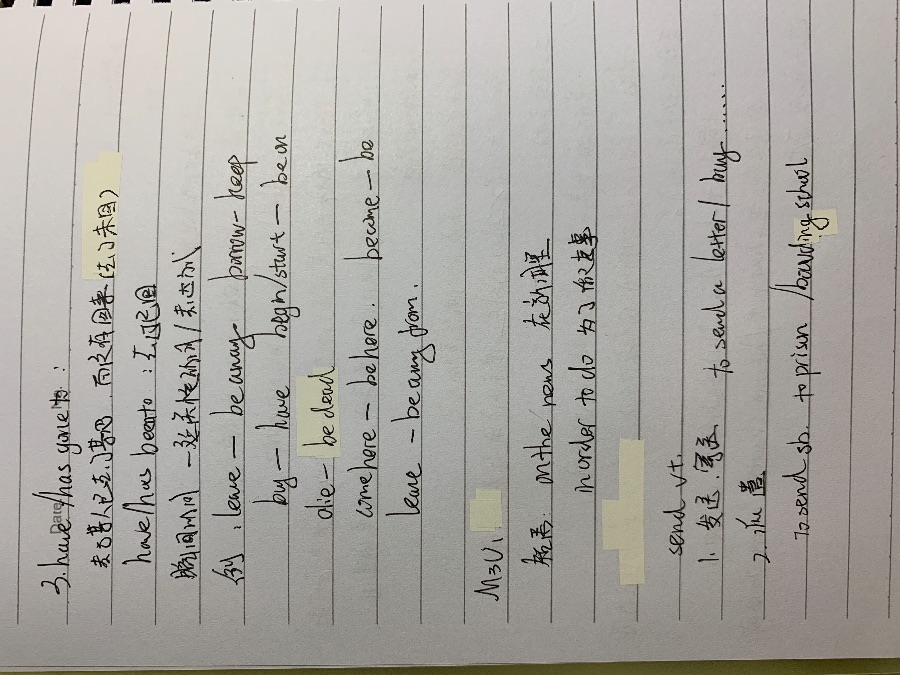 Date
3. have/has gone to :
表示某人已去了某地，而没有回来（去了未回）
have/has been to : 去了已回
瞬间动词 — 延续性动词/表达式
例: leave — be away borrow — keep
buy — have begin/start — be on
die — be dead
come here — be here. become — be
leave — be away from.
M3U1
短语: on the news 在新闻里
in order to do 为了做某事
send vt.
1. 发送. 寄送 to send a letter / buy ......
2. 派遣
To send sb. to prison / boarding school